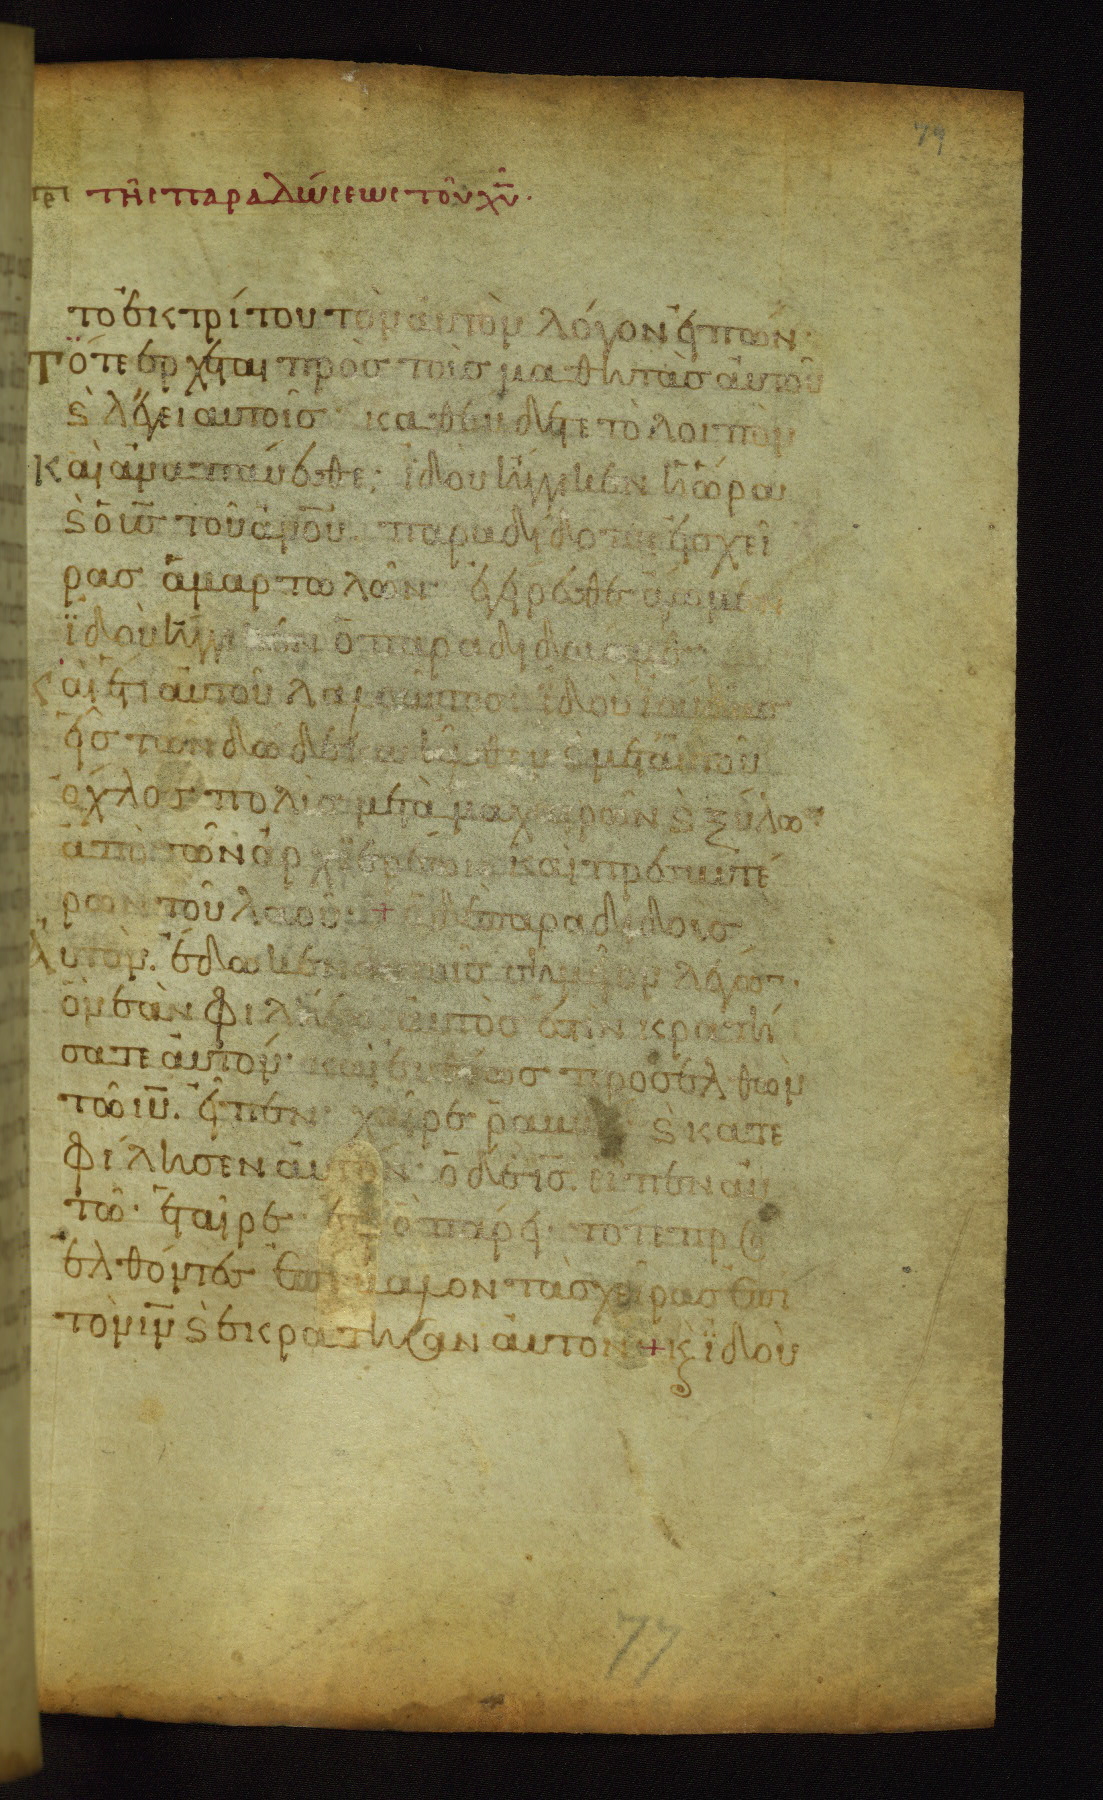 79
περι τῆς παραδώσεως τοῦ χῦ.
το ἐκ τρίτου τὸν αυτὸν λόγον εἰπών·
Τότε ερχεται πρὸσ τοὺσ μαθητὰσ αυτοῦ
ϛ λέγει αυτοῖσ· καθεύδετε τὸ λοιπὸν
Και αναπαύεσθε· ἰδοὺ ἤγγικεν ἡ ὥρα
ϛ ὁ ισ τοῦ ανου παραδίδοται εἰσ χεῖ
ρασ ἁμαρτωλῶν εγείρεσθε ἄγωμεν
ϊδοὺ ἤγγικεν ὁ παραδιδούσ με·
Καὶ ἔτι αυτοῦ λαλοῦντοσ· ϊδοὺ ιούδασ
εἷσ των δώδεκα ἦλθεν ϛ μετ αυτοῦ
ὄχλοσ πολὺσ μετὰ μαχαιρῶν ϛ ξύλων·
ἀπὸ τῶν ἀρχιερέων και πρεσβυτέ
ρων τοῦ λαοῦ· + ὁ δὲ παραδιδοὺσ
Αυτὸν. ἔδωκεν αυτοῖσ σημεῖον λέγων·
ὃν εὰν φιλήσω αυτόσ ἐστιν κρατή
σατε αυτόν· και ευθέωσ προσελθὼν
τῶ ιυ. εἶπεν· χαῖρε ραββί· ϛ κατε
φίλησεν αυτόν· ὁ δὲ ισ. εἶπεν αυ
τῶ· ἑταῖρε ἐφ ὃ πάρει· τότε προσ
ελθόντεσ ἐπέβαλον τὰσ χεῖρασ ἐπι
τὸν ιν ϛ ἐκράτησαν αυτόν + κ ϊδοὺ
77